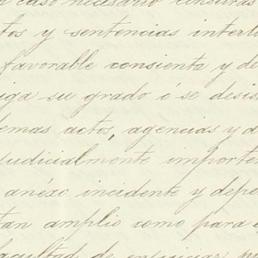 n caso necesario censuras
tos y sentencias interl
favorable consienta y de
iga su grado ó se desis
lemas actos, agencias y d
judicialmente importe
anéxo incidente y depe
tan amplio como para e
facultad de enjuiciar, ju